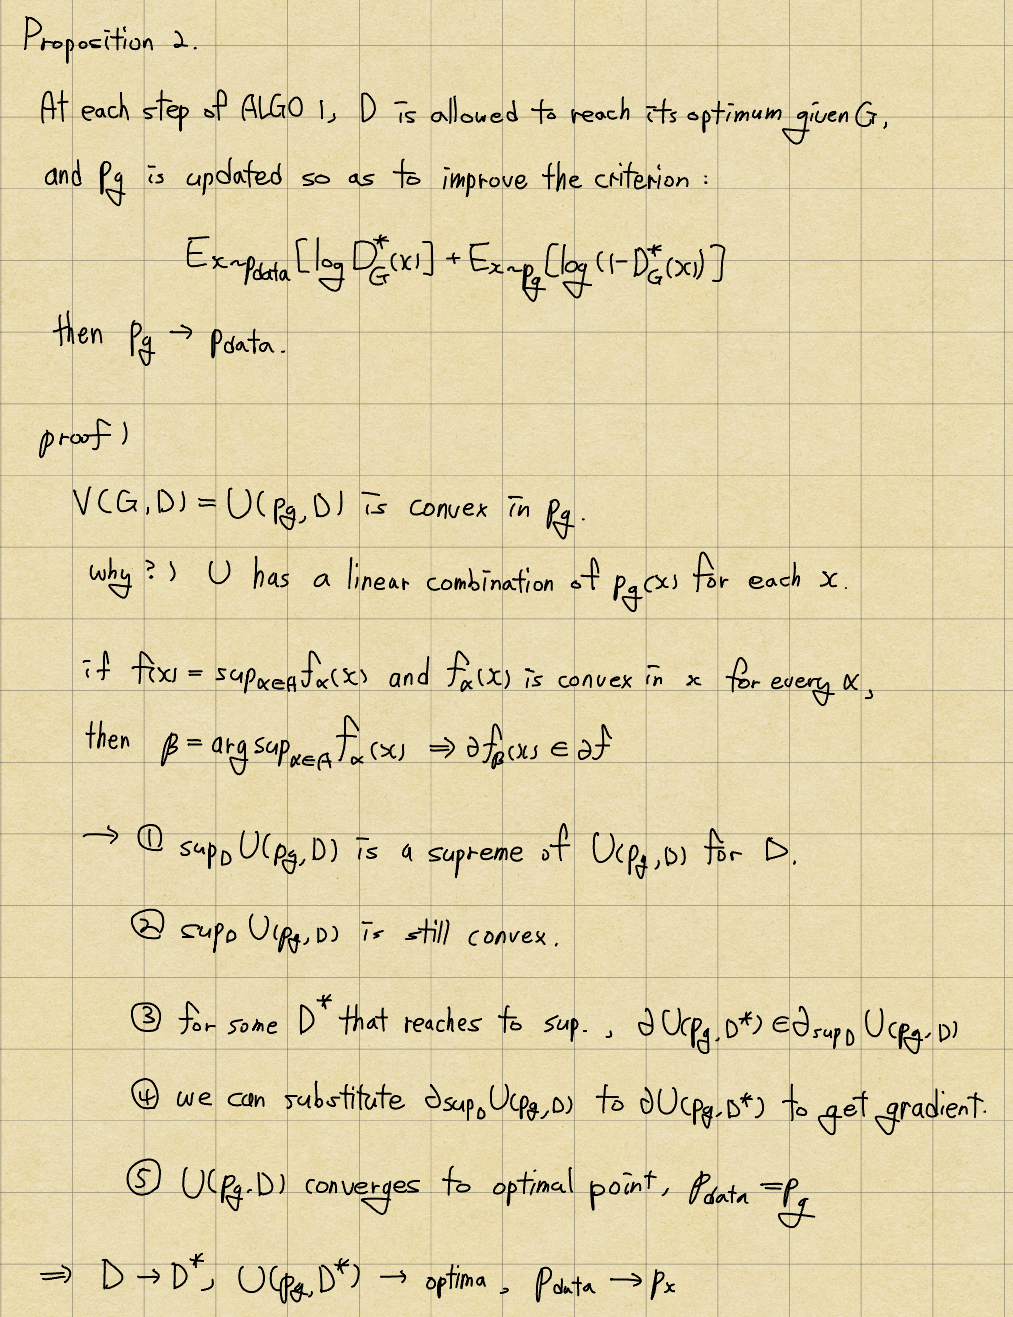 Proposition 2.
At each step of ALGO 1, D is allowed to reach its optimum given G,
and pg is updated so as to improve the criterion :
E_{x~pdata}[log D*_G(x)] + E_{x~pg}[log (1-D*_G(x))]
then pg → pdata.
proof)
V(G,D) = U(pg,D) is convex in pg.
why?) U has a linear combination of pg(x) for each x.
if f(x) = sup_{α∈A} f_α(x) and f_α(x) is convex in x for every α,
then β = arg sup_{α∈A} f_α(x) ⇒ ∂f_β(x) ∈ ∂f
→ ① sup_D U(pg,D) is a supreme of U(pg,D) for D.
② sup_D U(pg,D) is still convex.
③ for some D* that reaches to sup. , ∂U(pg,D*) ∈ ∂sup_D U(pg,D)
④ we can substitute ∂sup_D U(pg,D) to ∂U(pg,D*) to get gradient.
⑤ U(pg,D) converges to optimal point, pdata = pg
⇒ D → D*, U(pg,D*) → optima, pdata → px